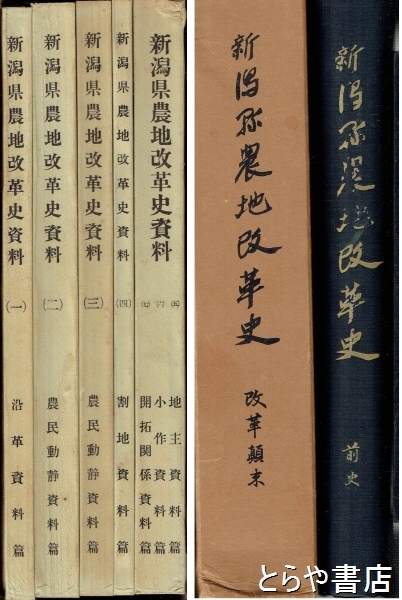 新潟県農地改革史資料
(一)
沿革資料篇
新潟県農地改革史資料
(二)
農民動静資料篇
新潟県農地改革史資料
(三)
農民動静資料篇
新潟県農地改革史資料
(四)
割地資料篇
新潟県農地改革史資料
(五)
地主資料篇
(六)
小作資料篇
(七)
開拓関係資料篇
新潟縣農地改革史
改革顛末
新潟縣農地改革史
前史
とらや書店